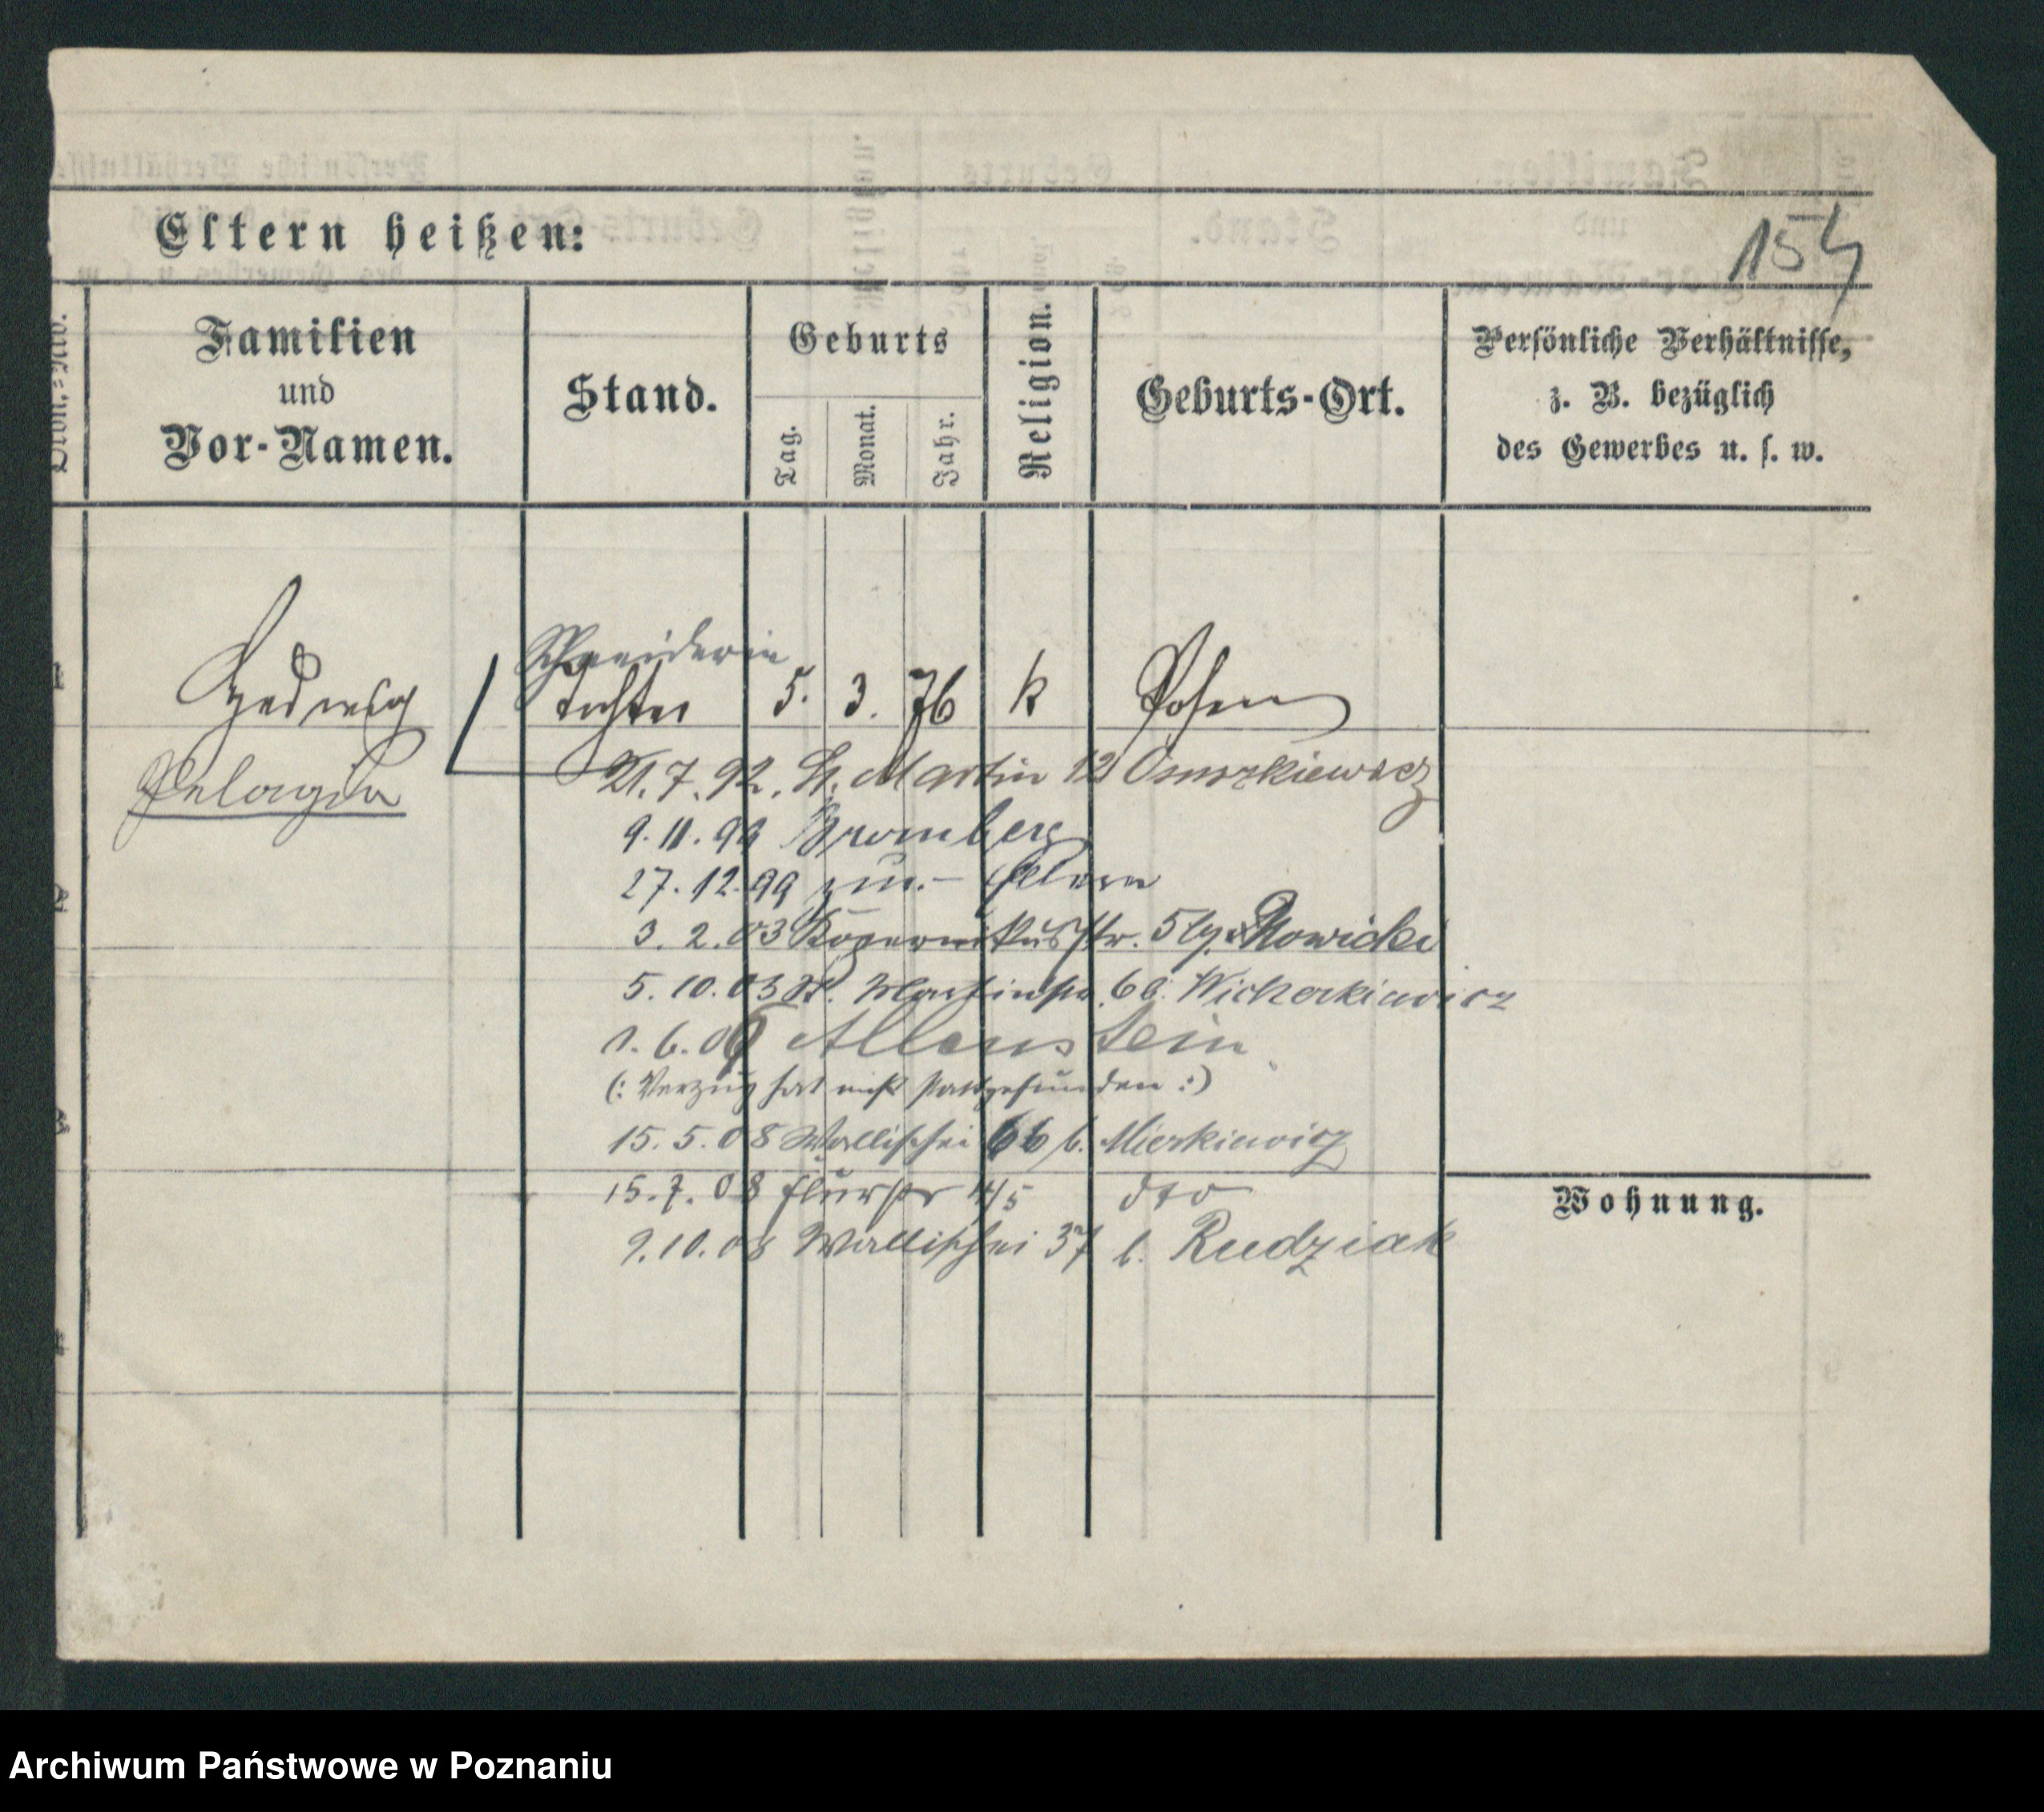 154
Eltern heißen:
Familien
und
Vor-Namen.
Stand.
Geburts
Tag.
Monat.
Jahr.
Religion.
Geburts-Ort.
Persönliche Verhältnisse,
z. B. bezüglich
des Gewerbes u. s. w.
Schneiderin
Hedwig Tochter 5. 3. 76 k Posen
Pelagia
21. 7. 92. St. Martin 12
9. 11. 99 Bromberg
27. 12. 99 zur.- Eltern
3. 2. 03 Kopernikusstr. 5 Nowicki
5. 10. 03 St. Martinstr. 6 b. Wicherkiewicz
1. 6. 06 Allenstein
(: Verzug hat nicht stattgefunden :)
15. 5. 08 Wallischei 66 b. Mierkiewicz
15. 7. 08 Flurstr 4/5 dto
9. 10. 08 Wallischei 37 b. Rudziak
Wohnung.
Archiwum Państwowe w Poznaniu